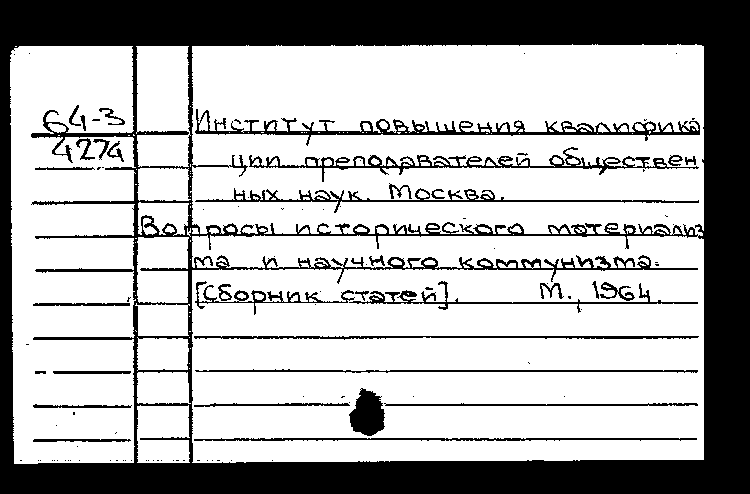 64-3
4274
Институт повышения квалифика-
ции преподавателей обществен-
ных наук. Москва.
Вопросы исторического материализ
ма и научного коммунизма.
[Сборник статей]. М., 1964.